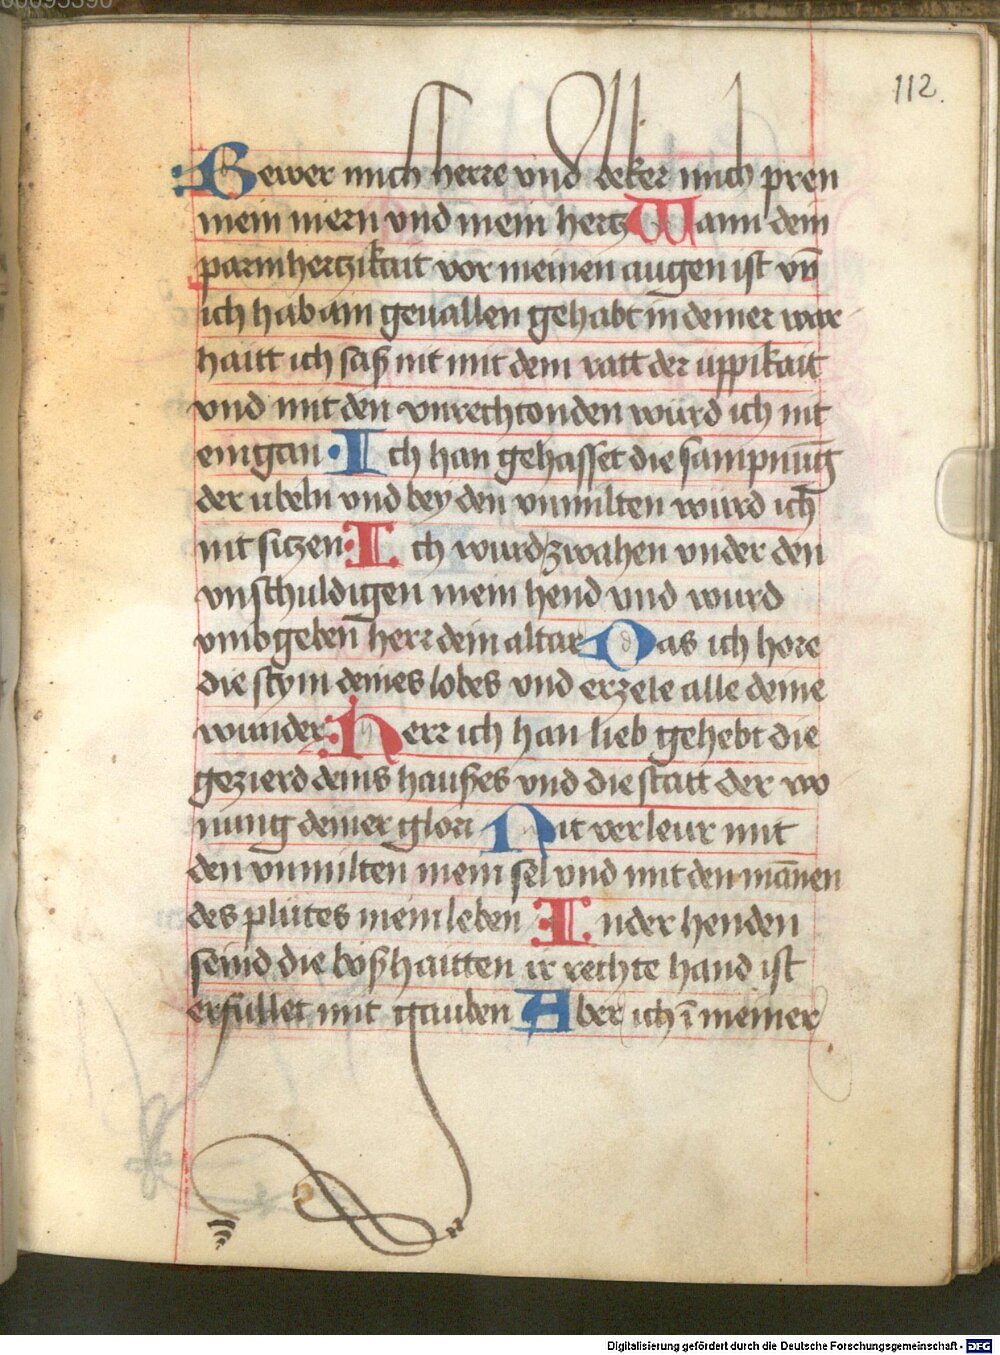 00095390
112
Bewer mich herre vnd beker mich pren
mein niern vnd mein hertz Wann dein
parmhertzikait vor meinen augen ist vn̄
ich hab ain geuallen gehabt in deiner war
haitt ich saß nit mit dem ratt der üppikait
vnd mit den vnrechtonden würd ich nit
eingan · Ich han gehasset die sampnūg
der übeln vnd bey den vnmilten würd ich
nit sitzen · Ich wurd zwahen vnder den
vnschuldigen mein hend vnd wurd
vmbgeben herr dein altar Das ich hore
die stym deines lobes vnd erzele alle deine
wunder · Herr ich han lieb gehebt die
gezierd deins haußes vnd die statt der wo
nung deiner glori Nit verleur mit
den vnmilten mein sel vnd mit den mānen
des plůtes mein leben In der henden
seind die boßhaitten ir rechte hand ist
erfüllet mit gauben Aber ich ī meiner
Digitalisierung gefördert durch die Deutsche Forschungsgemeinschaft - DFG